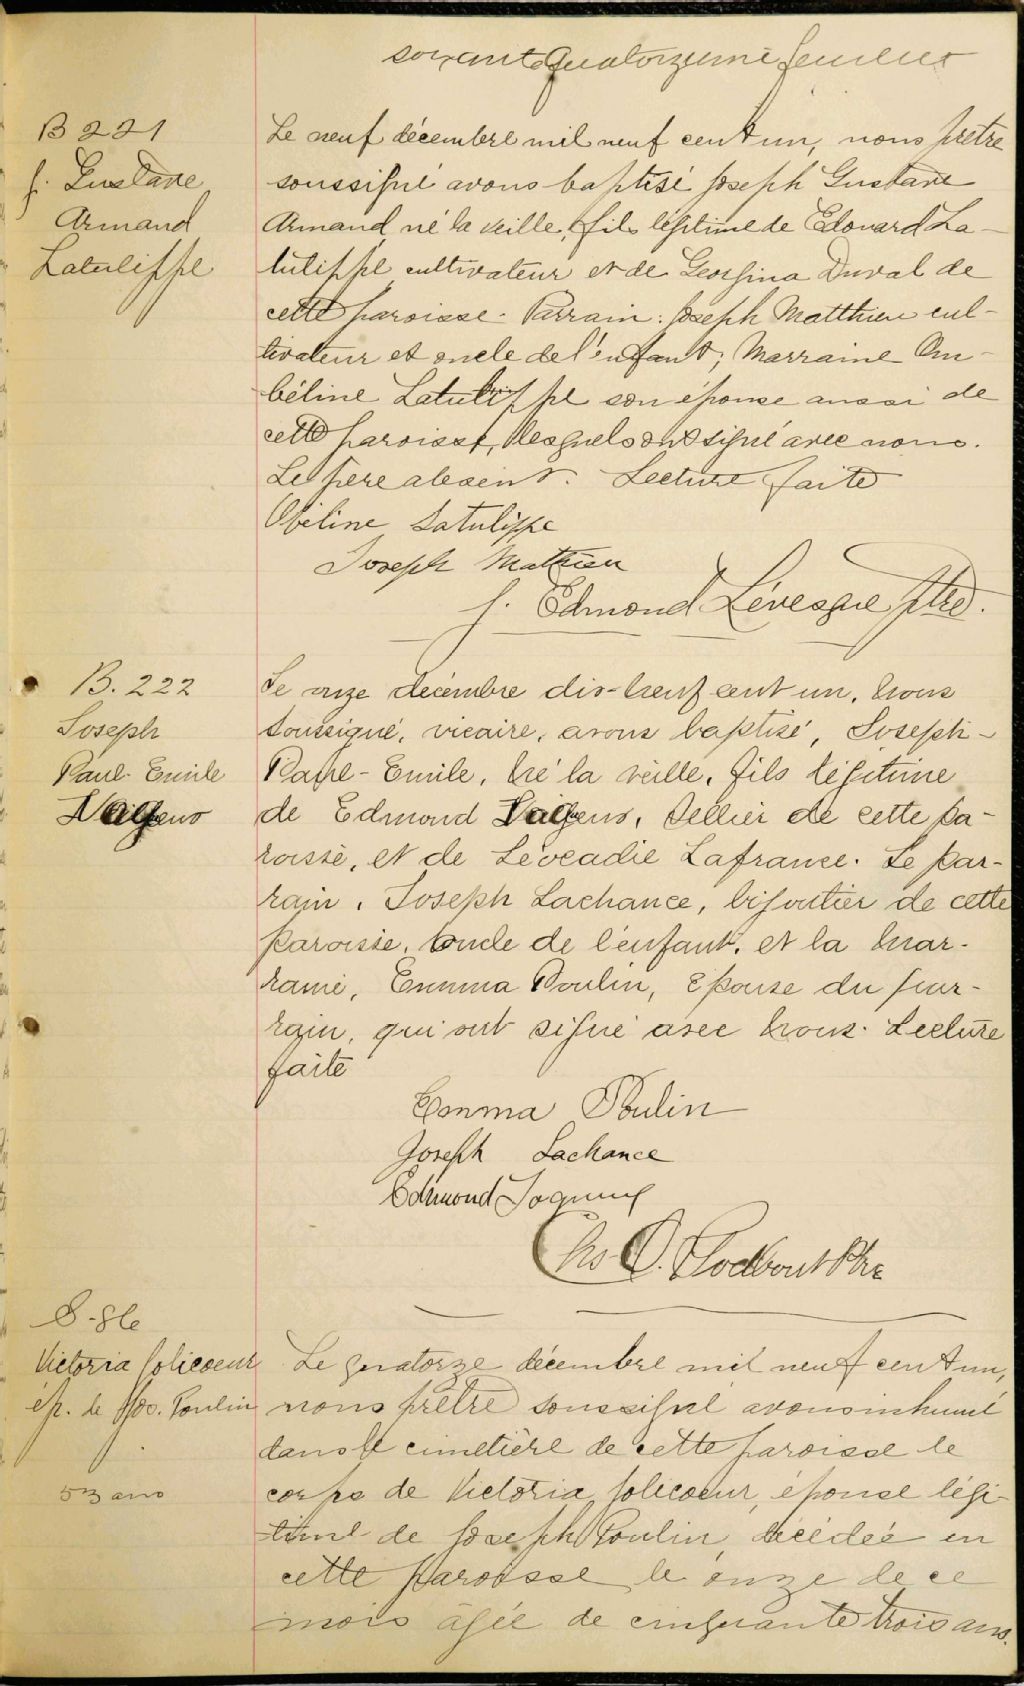 soixante quatorzieme feuillet
B 221
J. Gustave
Armand
Latulippe
Le neuf décembre mil neuf cent un, nous prêtre
soussigné avons baptisé Joseph Gustave
Armand, né la veille, fils légitime de Edouard La-
tulippe cultivateur et de Georgina Duval de
cette paroisse. Parrain: Joseph Matthieu cul-
tivateur et oncle de l'enfant; Marraine Om-
béline Latulippe son épouse aussi de
cette paroisse, lesquels ont signé avec nous.
Le père absent. Lecture faite
Obéline Latulippe
Joseph Mathieu
J. Edmond Lévesque ptre.
B. 222
Joseph
Paul-Emile
Le onze décembre dix-neuf cent un, nous
soussigné, vicaire, avons baptisé, Joseph-
Paul-Emile, né la veille, fils légitime
de Edmond sellier de cette pa-
roisse, et de Léocadie Lafrance. Le par-
rain, Joseph Lachance, bijoutier de cette
paroisse, oncle de l'enfant, et la mar-
raine, Emma Poulin, épouse du par-
rain, qui ont signé avec nous. Lecture
faite
Emma Poulin
Joseph Lachance
Edmond
Chs O. Rockbout Ptre
S-86
Victoria Jolicoeur
ép. de Jos. Poulin
53 ans
Le quatorze décembre mil neuf cent un,
nous prêtre soussigné avons inhumé
dans le cimetière de cette paroisse le
corps de Victoria Jolicoeur, épouse légi-
time de Joseph Poulin, décédée en
cette paroisse le onze de ce
mois âgée de cinquante trois ans.